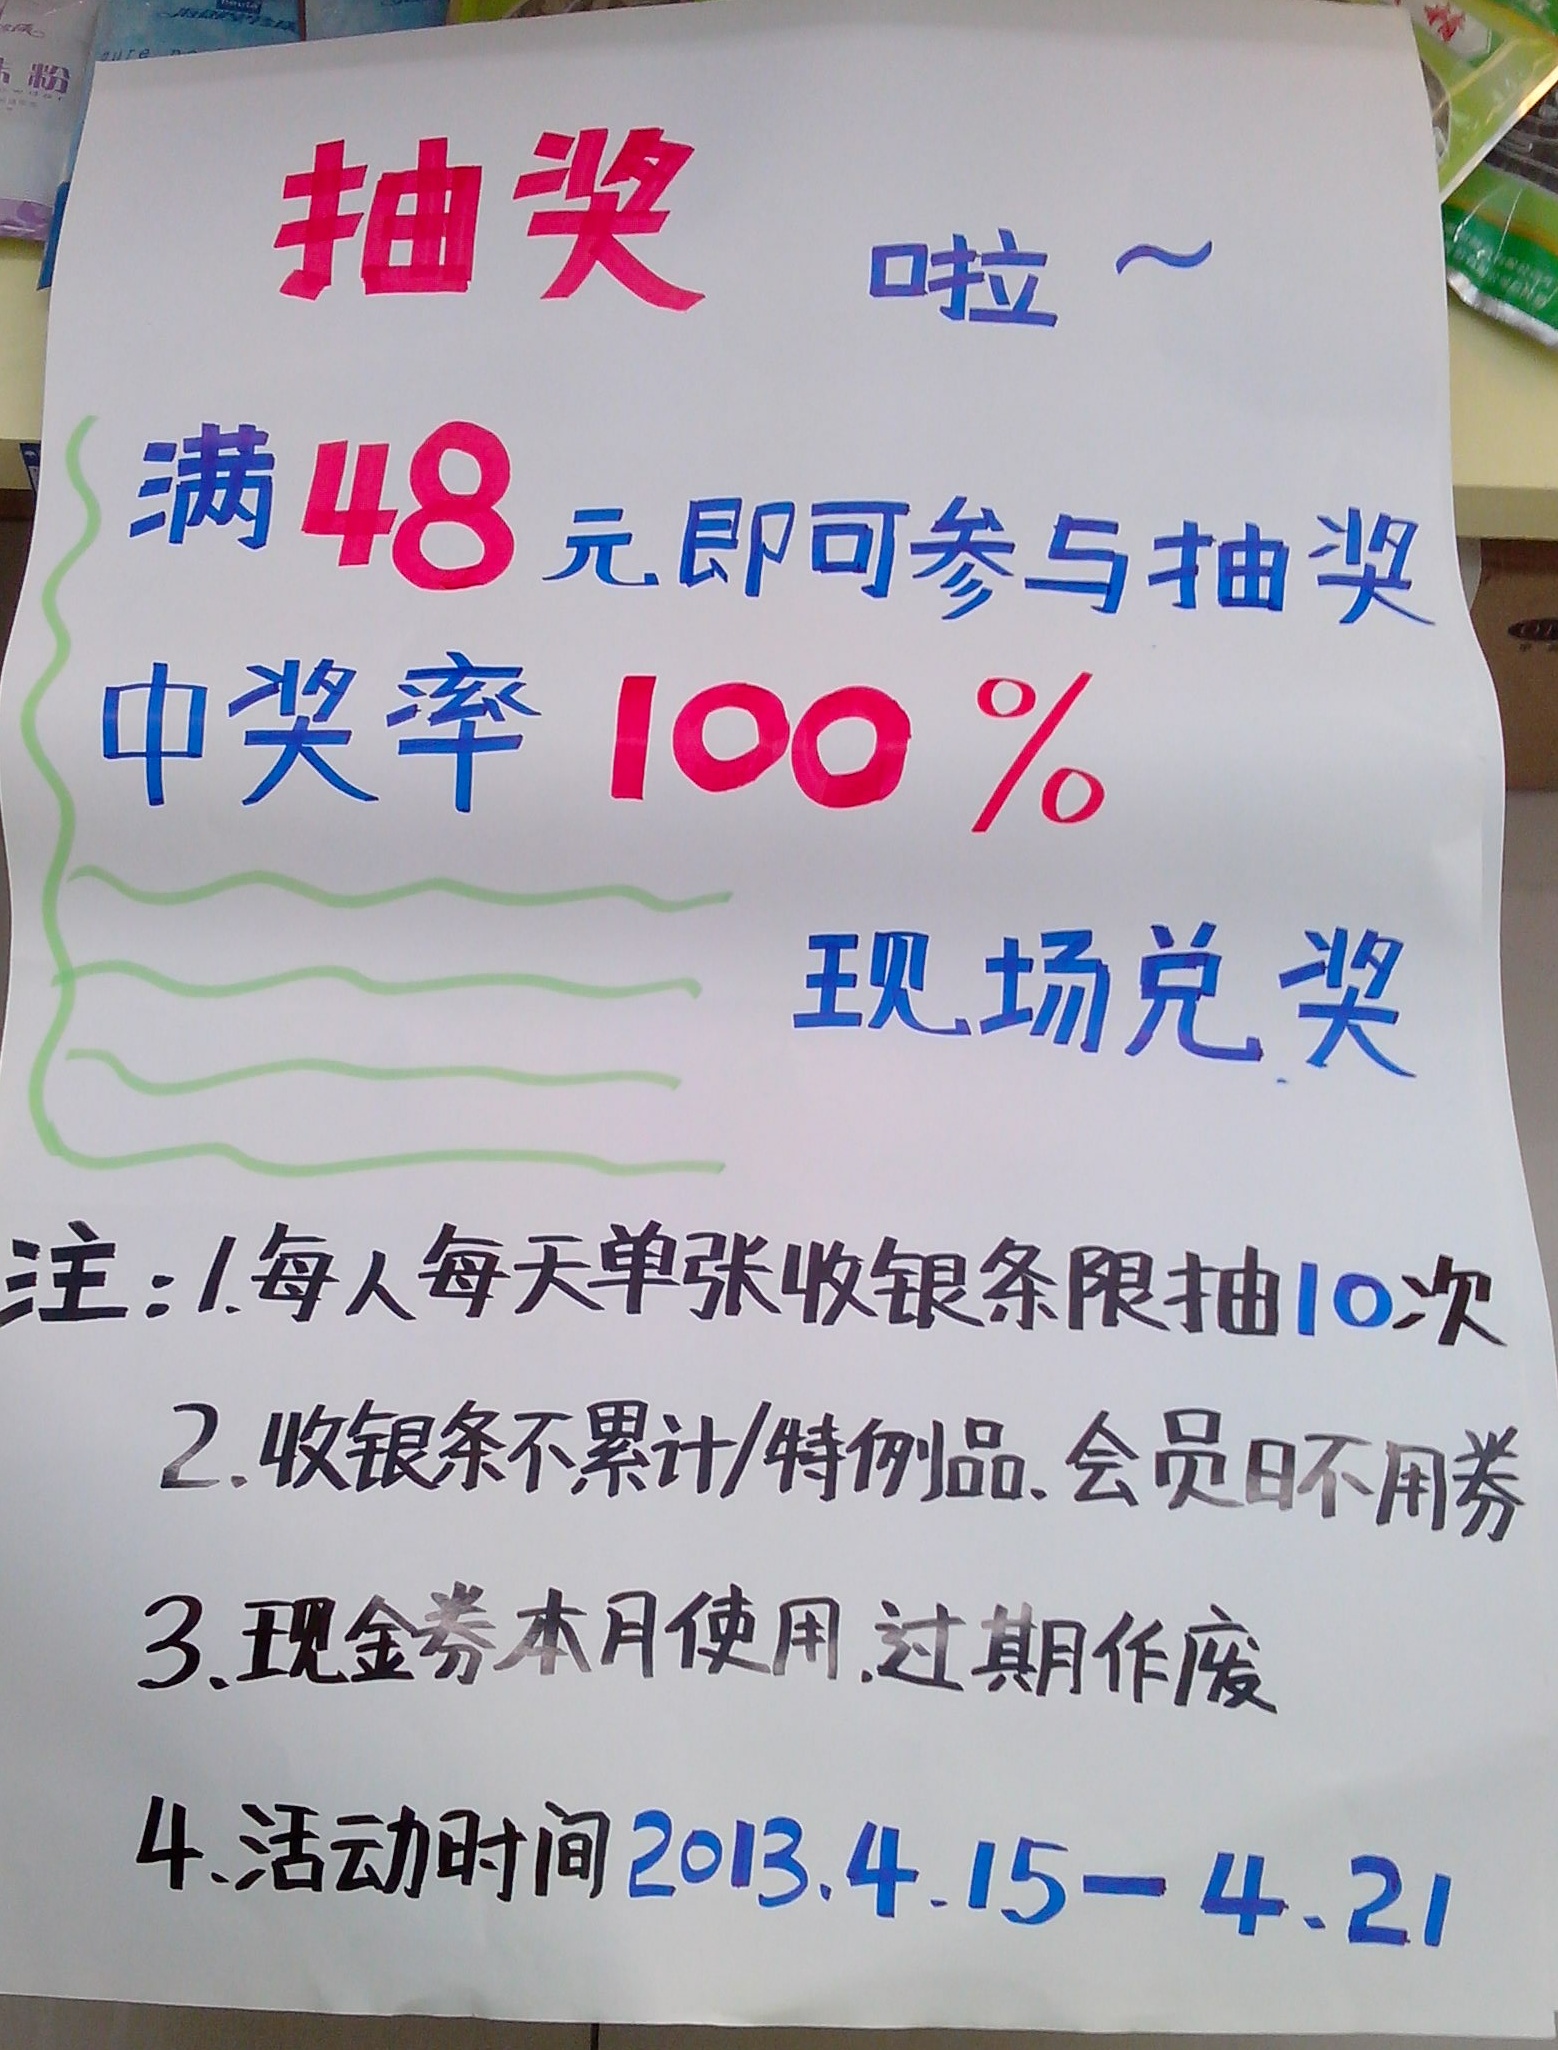 抽奖 啦～
满48元即可参与抽奖
中奖率100%
现场兑奖
注:1.每人每天单张收银条限抽10次
2.收银条不累计/特例品、会员日不用券
3、现金券本月使用.过期作废
4、活动时间2013.4.15—4.21
粉